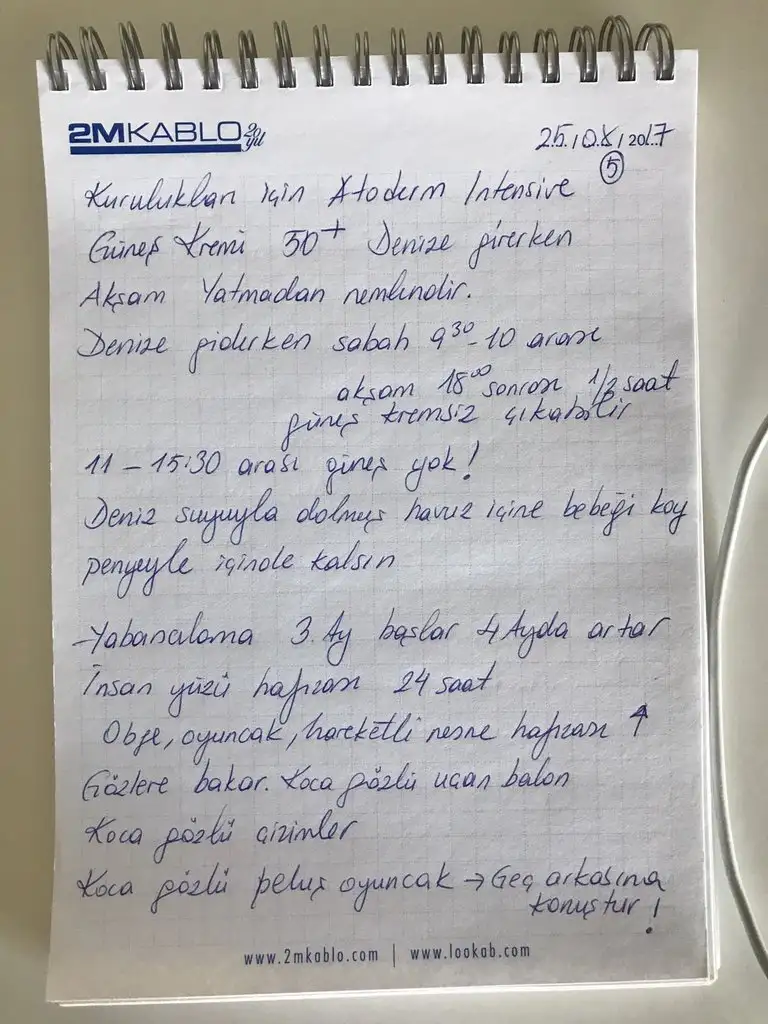 2MKABLO 20 yıl
25/08/2017
5
Kurulukları için Atoderm Intensive
Güneş Kremi 50+ Denize girerken
Akşam Yatmadan nemlendir.
Denize giderken sabah 9³⁰-10 arası
akşam 18⁰⁰ sonrası 1/2 saat
güneş kremsiz çıkabilir
11 – 15:30 arası güneş yok!
Deniz suyuyla dolmuş havuz içine bebeği koy
penyeyle içinde kalsın
-Yabancılama 3. Ay başlar 4 Ayda artar
İnsan yüzü hafızası 24 saat
Obje, oyuncak, hareketli nesne hafızası ↑
Gözlere bakar. Koca gözlü uçan balon
Koca gözlü çizimler
Koca gözlü peluş oyuncak → Geç arkasına
konuştur!
www.2mkablo.com | www.lookab.com